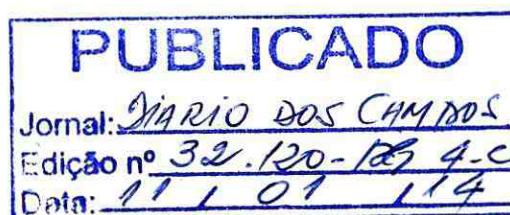 PUBLICADO
Jornal: DIARIO DOS CAMPOS
Edição nº 32.120- 4-C
Data: 11 / 01 / 14